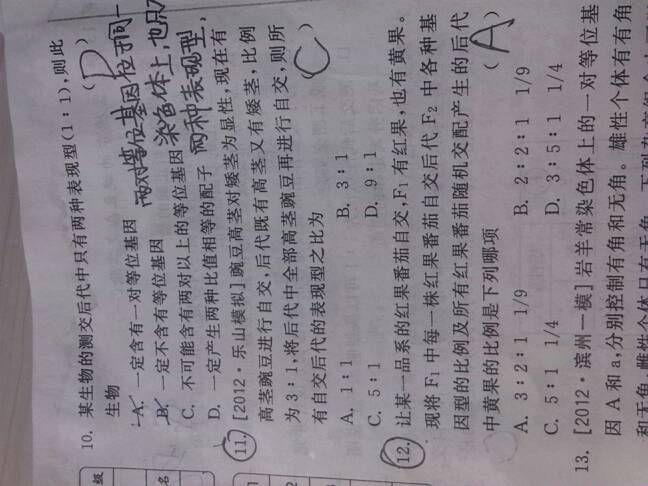 10. 某生物的测交后代中只有两种表现型(1:1),则此
生物 ( D )
A. 一定含有一对等位基因 两对等位基因位于同一
B. 一定不含有等位基因 染色体上,也只
C. 不可能含有两对以上的等位基因 两种表现型,
D. 一定产生两种比值相等的配子
11. [2012·乐山模拟]豌豆高茎对矮茎为显性,现在有
高茎豌豆进行自交,后代既有高茎又有矮茎,比例
为3:1,将后代中全部高茎豌豆再进行自交,则所
有自交后代的表现型之比为 ( C )
A. 1:1 B. 3:1
C. 5:1 D. 9:1
12. 让某一品系的红果番茄自交,F1有红果,也有黄果。
现将F1中每一株红果番茄自交后代F2中各种基
因型的比例及所有红果番茄随机交配产生的后代
中黄果的比例是下列哪项 ( A )
A. 3:2:1 1/9 B. 2:2:1 1/9
C. 5:1 1/4 D. 3:5:1 1/4
13. [2012·滨州一模]岩羊常染色体上的一对等位基
因A和a,分别控制有角和无角。雄性个体有有角
和无角,雌性个体只有无角。
级
名
1
2